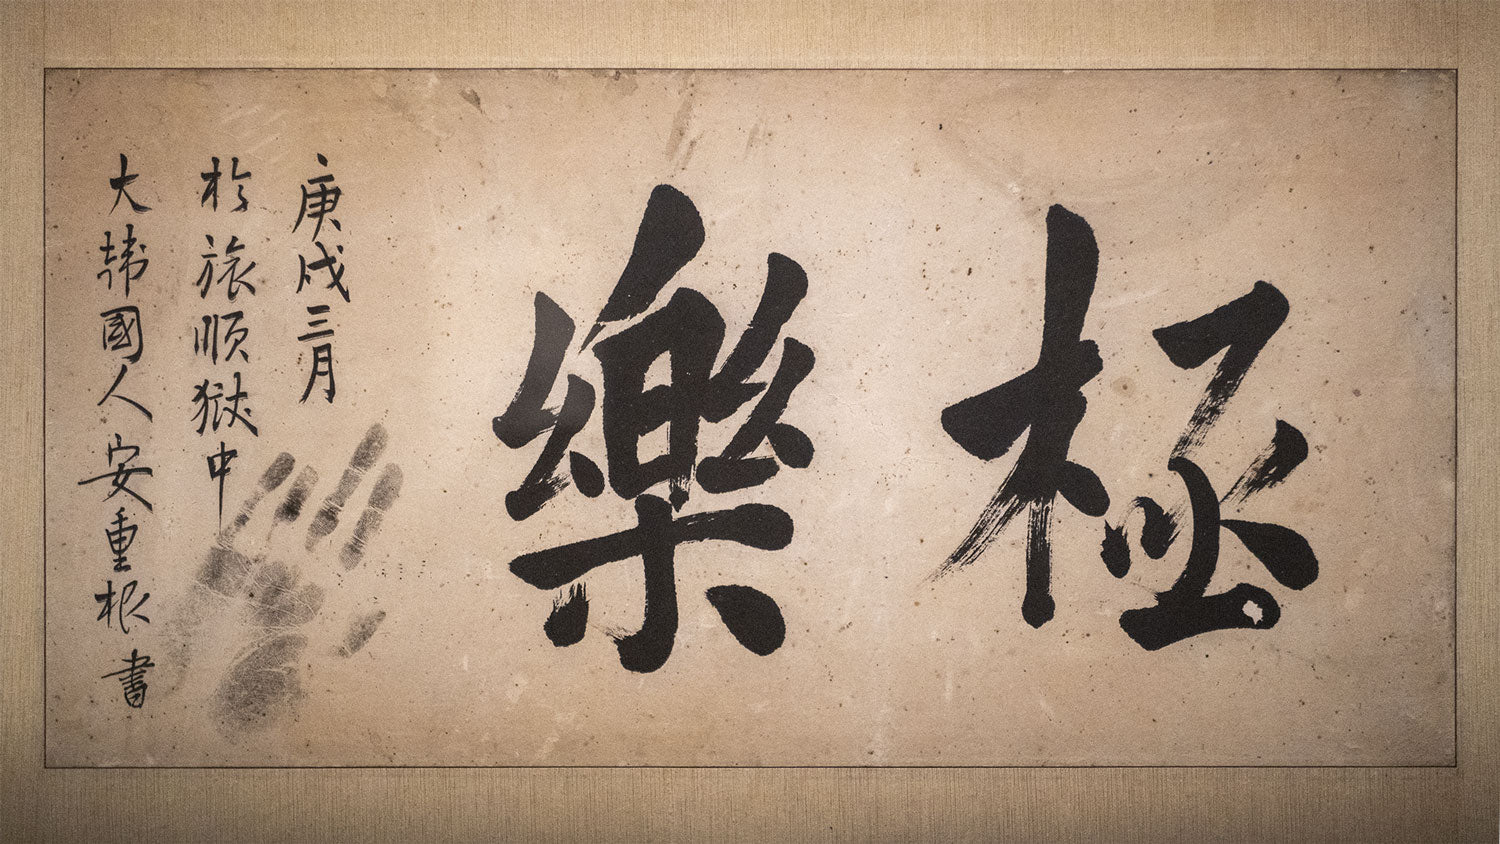 極樂
庚戌三月
於旅順獄中
大韓國人安重根書